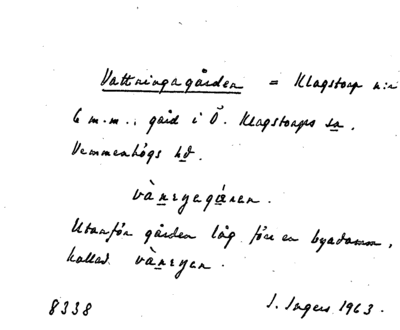 Vattningagården = Klagstorp n:r
6 m.m., gård i Ö. Klagstorps sn,
Vemmenhögs hd.
vànɪyegáren.
Utanför gården låg förr en byadamm,
kallad vànɪyen.
8338 I. Ingers 1963.